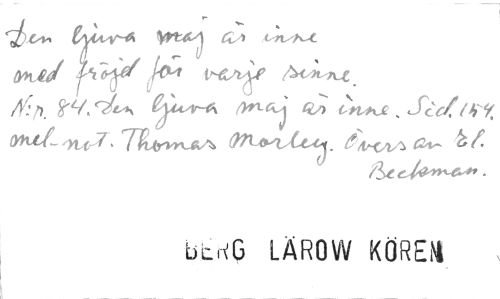 Den ljuva maj är inne
med fröjd för varje sinne.
N:r. 84. Den ljuva maj är inne. Sid. 154.
mel-not. Thomas Morley. Övers av El.
Beckman.
BERG LÄROW KÖREN